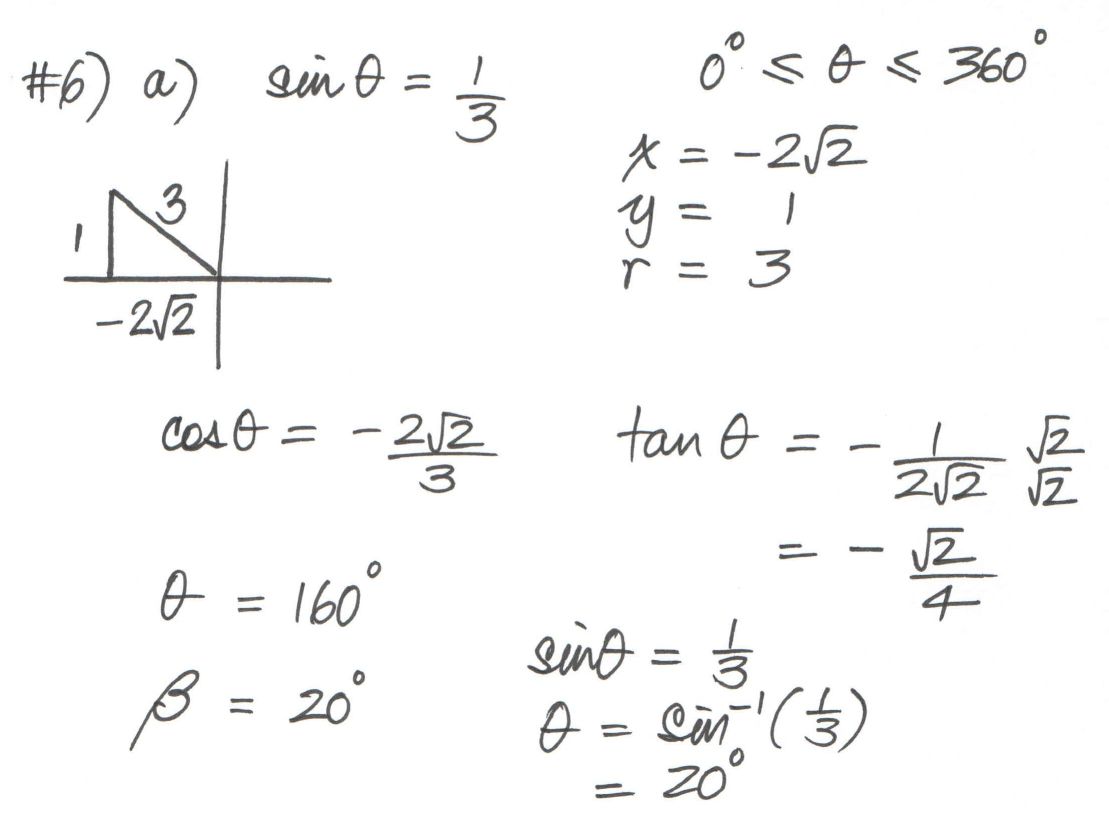 #6) a) sin θ = 1/3
0° ≤ θ ≤ 360°
x = -2√2
y = 1
r = 3
3
1
-2√2
cos θ = - 2√2/3
tan θ = - 1/(2√2) √2/√2
= - √2/4
θ = 160°
β = 20°
sin θ = 1/3
θ = sin⁻¹(1/3)
= 20°